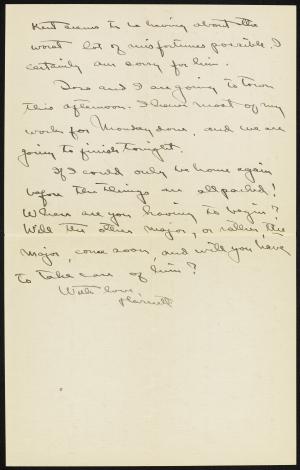 Kent seems to be having about the
worst lot of misfortunes possible. I
certainly am sorry for him.
Dore and I are going to town
this afternoon. I have most of my
work for Monday done, and we are
going to finish tonight.
If I could only be home again
before the things are all packed!
When are you having to begin?
Will the other major, or rather, the
major, come soon, and will you have
to take care of him?
With love,
Harriett